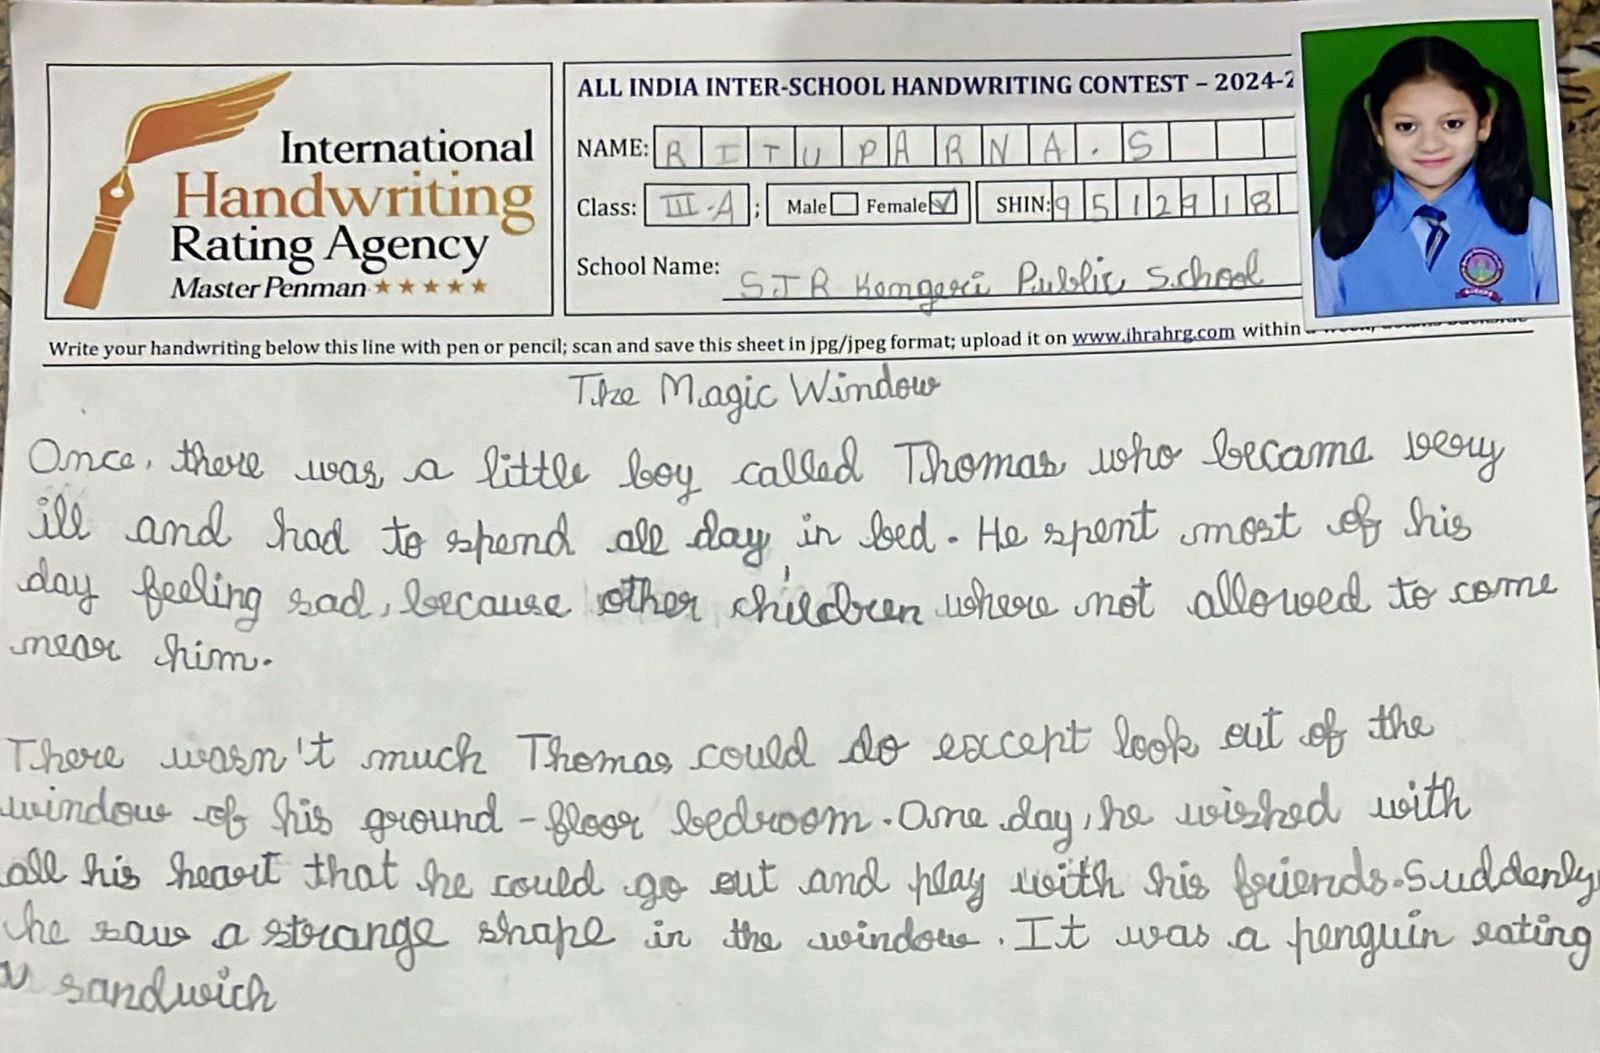 International
Handwriting
Rating Agency
Master Penman
ALL INDIA INTER-SCHOOL HANDWRITING CONTEST – 2024-2
NAME: RITUPARNA.S
Class: III-A ; Male Female SHIN: 9512918
School Name: SJR Kengeri Public School
Write your handwriting below this line with pen or pencil; scan and save this sheet in jpg/jpeg format; upload it on www.ihrahrg.com within
The Magic Window
Once, there was a little boy called Thomas who became very
ill and had to spend all day in bed. He spent most of his
day feeling sad, because other children where not allowed to come
near him.
There wasn't much Thomas could do except look out of the
window of his ground-floor bedroom. One day, he wished with
all his heart that he could go out and play with his friends. Suddenly
he saw a strange shape in the window. It was a penguin eating
sandwich